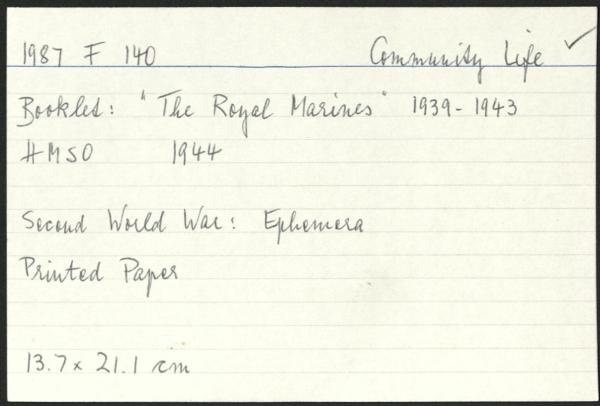 1987 F 140 Community Life ✓
Booklet: "The Royal Marines" 1939-1943
HMSO 1944
Second World War: Ephemera
Printed Paper
13.7 x 21.1 cm